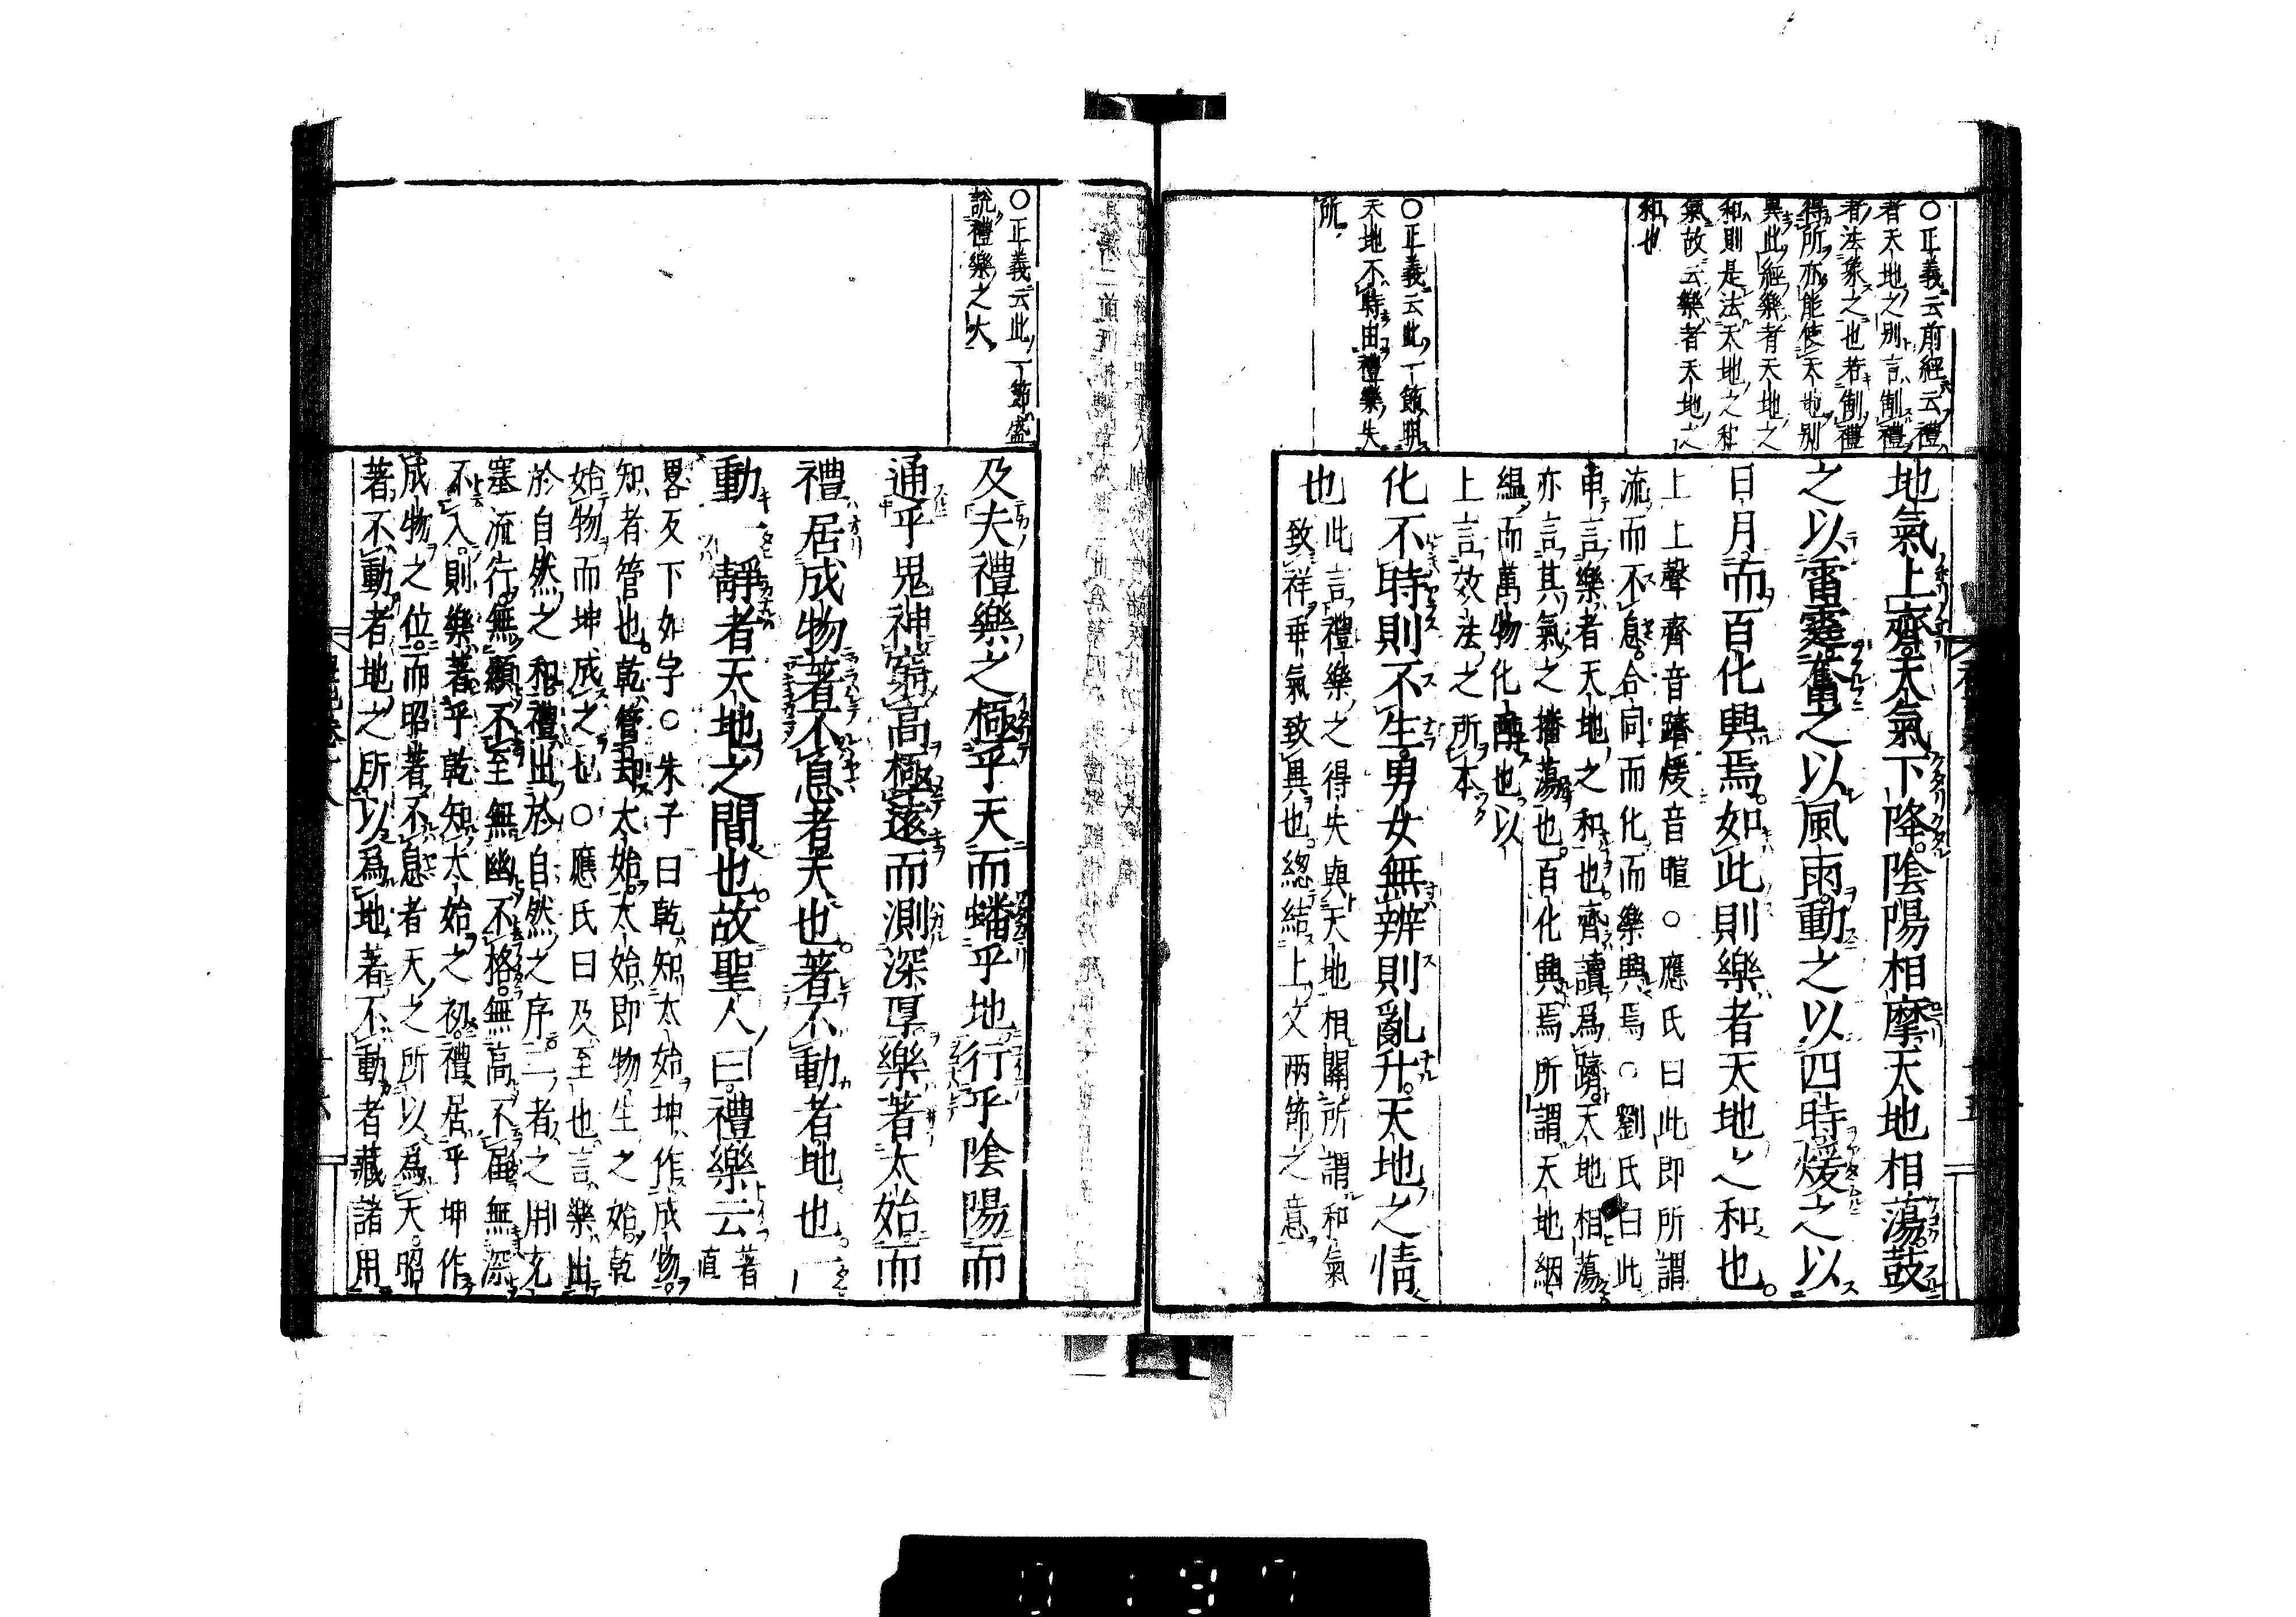 ○正義云前經云禮
者天地之別言制禮
者法象之也若制禮
得所亦能使天地別
異此經樂者天地之
和則是法天地之和
氣故云樂者天地之
和也
○正義云此一節明
天地不時由禮樂失
所
地氣上齊天氣下降陰陽相摩天地相蕩鼓
之以雷霆奮之以風雨動之以四時煖之以
日月而百化興焉如此則樂者天地之和也
上上聲齊音躋煖音暄○應氏曰此即所謂
流而不息合同而化而樂興焉○劉氏曰此
申言樂者天地之和也齊讀爲躋天地相蕩
亦言其氣之播蕩也百化興焉所謂天地絪
縕而萬物化醇也以
上言效法之所本
化不時則不生男女無辨則亂升天地之情
也
此言禮樂之得失與天地相關所謂和氣
致祥乖氣致異也總結上文兩節之意
○正義云此一節盛
說禮樂之大
及夫禮樂之極乎天而蟠乎地行乎陰陽而
通乎鬼神窮高極遠而測深厚樂著太始而
禮居成物著不息者天也著不動者地也一
動一靜者天地之間也故聖人曰禮樂云著
直
畧反下如字○朱子曰乾知太始坤作成物
知者管也乾管却太始太始即物生之始乾
始物而坤成之也○應氏曰及至也言樂出
於自然之和禮出於自然之序二者之用充
塞流行無顯不至無幽不格無高不屆無深
不入則樂著乎乾知太始之初禮居乎坤作
成物之位而昭著不息者天之所以爲天昭
著不動者地之所以爲地著不動者藏諸用